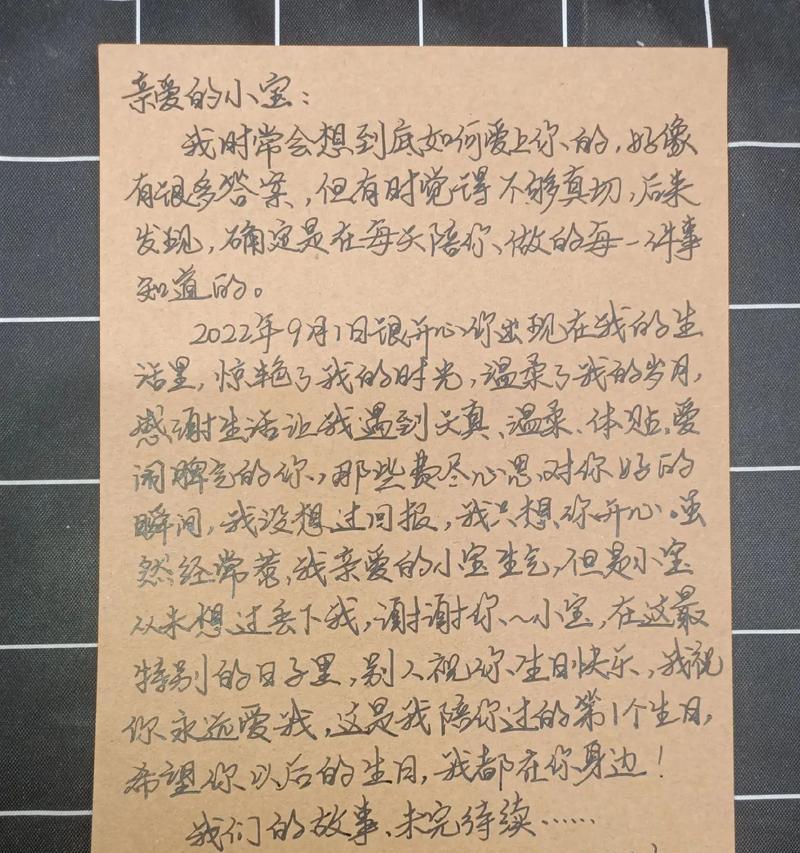 亲爱的小宝：
我时常会想到底如何爱上你的，好像
有很多答案，但有时觉得不够真切，后来
发现，确定是在每天陪你、做的每一件事
知道的。
2022年9月1日很开心你出现在我的生
活里，惊艳了我的时光，温柔了我的岁月，
感谢生活让我遇到天真、温柔、体贴，爱
闹脾气的你，那些费尽心思，对你好的
瞬间，我没想过回报，我只想你开心。虽
然经常惹，我亲爱的小宝生气，但是小宝
从未想过丢下我，谢谢你~小宝，在这最
特别的日子里，别人祝你、生日快乐，我祝
你永远爱我，这是我陪你过的第1个生日，
希望你以后的生日，我都在你身边！
我们的故事、未完待续……